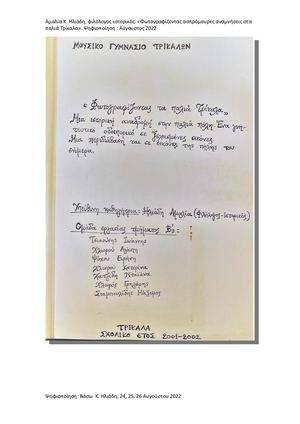 Αμαλία Κ. Ηλιάδη, φιλόλογος-ιστορικός: «Φωτογραφίζοντας ασπρόμαυρες αναμνήσεις στα
παλιά Τρίκαλα». Ψηφιοποίηση : Αύγουστος 2022
ΜΟΥΣΙΚΟ ΓΥΜΝΑΣΙΟ ΤΡΙΚΑΛΩΝ
«Φωτογραφίζοντας τα παλιά Τρίκαλα»
Μια ιστορική αναδρομή στην παλιά πόλη. Ένα γοη-
τευτικό οδοιπορικό σε ξεχασμένες εικόνες.
Μια περιδιάβαση και σε εικόνες της πόλης του
σήμερα.
Υπεύθυνη καθηγήτρια: Ηλιάδη Αμαλία (Φιλόλογος-Ιστορικός)
Ομάδα εργασίας τμήματος Β₂:
Ιωάννης
Ειρήνη
Κατερίνα
Χατζίδη Νταϊάνα
Γρηγόρης
ΤΡΙΚΑΛΑ
ΣΧΟΛΙΚΟ ΕΤΟΣ 2001-2002
Ψηφιοποίηση: Βάσω Κ. Ηλιάδη, 24, 25, 26 Αυγούστου 2022